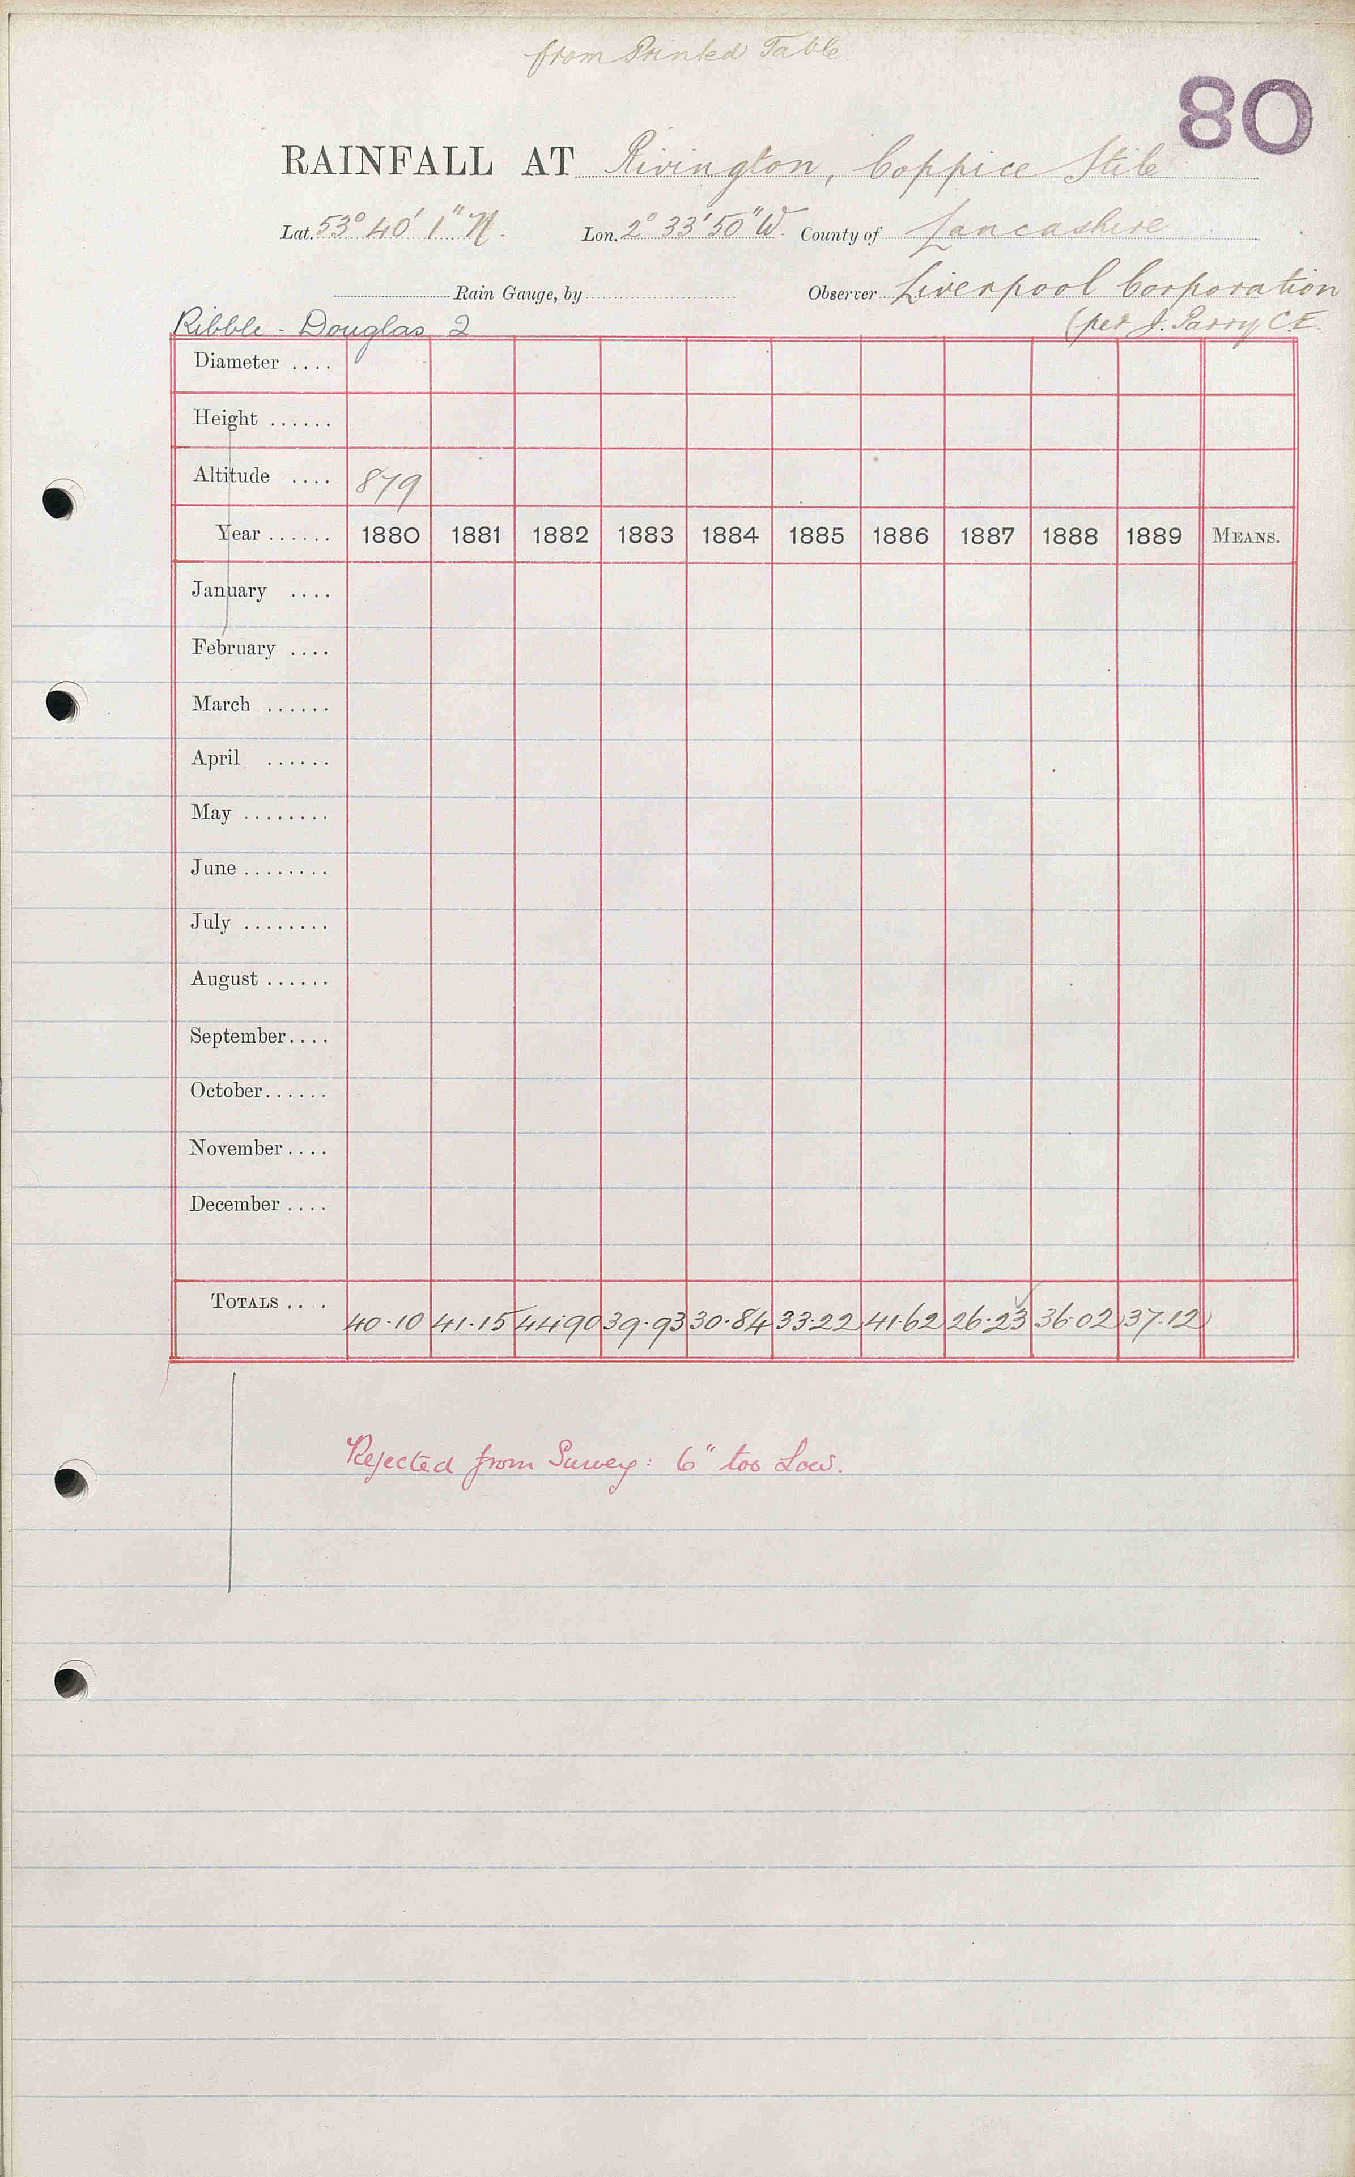 from Printed Table
80
RAINFALL AT Rivington, Coppice Stile
Lat. 53° 40' 1" N. Lon. 2° 33' 50" W. County of Lancashire
Rain Gauge, by Observer Liverpool Corporation
(per J. Parry C.E.
Ribble - Douglas 2
Diameter ....
Height ......
Altitude .... 879
Year ...... 1880 1881 1882 1883 1884 1885 1886 1887 1888 1889 MEANS.
January ....
February ....
March ......
April ......
May ........
June ........
July ........
August ......
September ....
October ......
November ....
December ....
TOTALS .... 40.10 41.15 44.90 39.93 30.84 33.22 41.62 26.23 36.02 37.12
Rejected from Survey: 6" too Low.